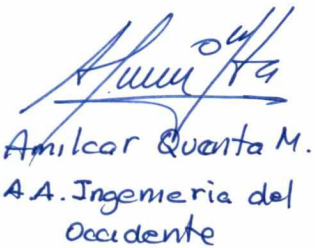 Amilcar Quanta M.
A.A. Ingemeria del
Occidente